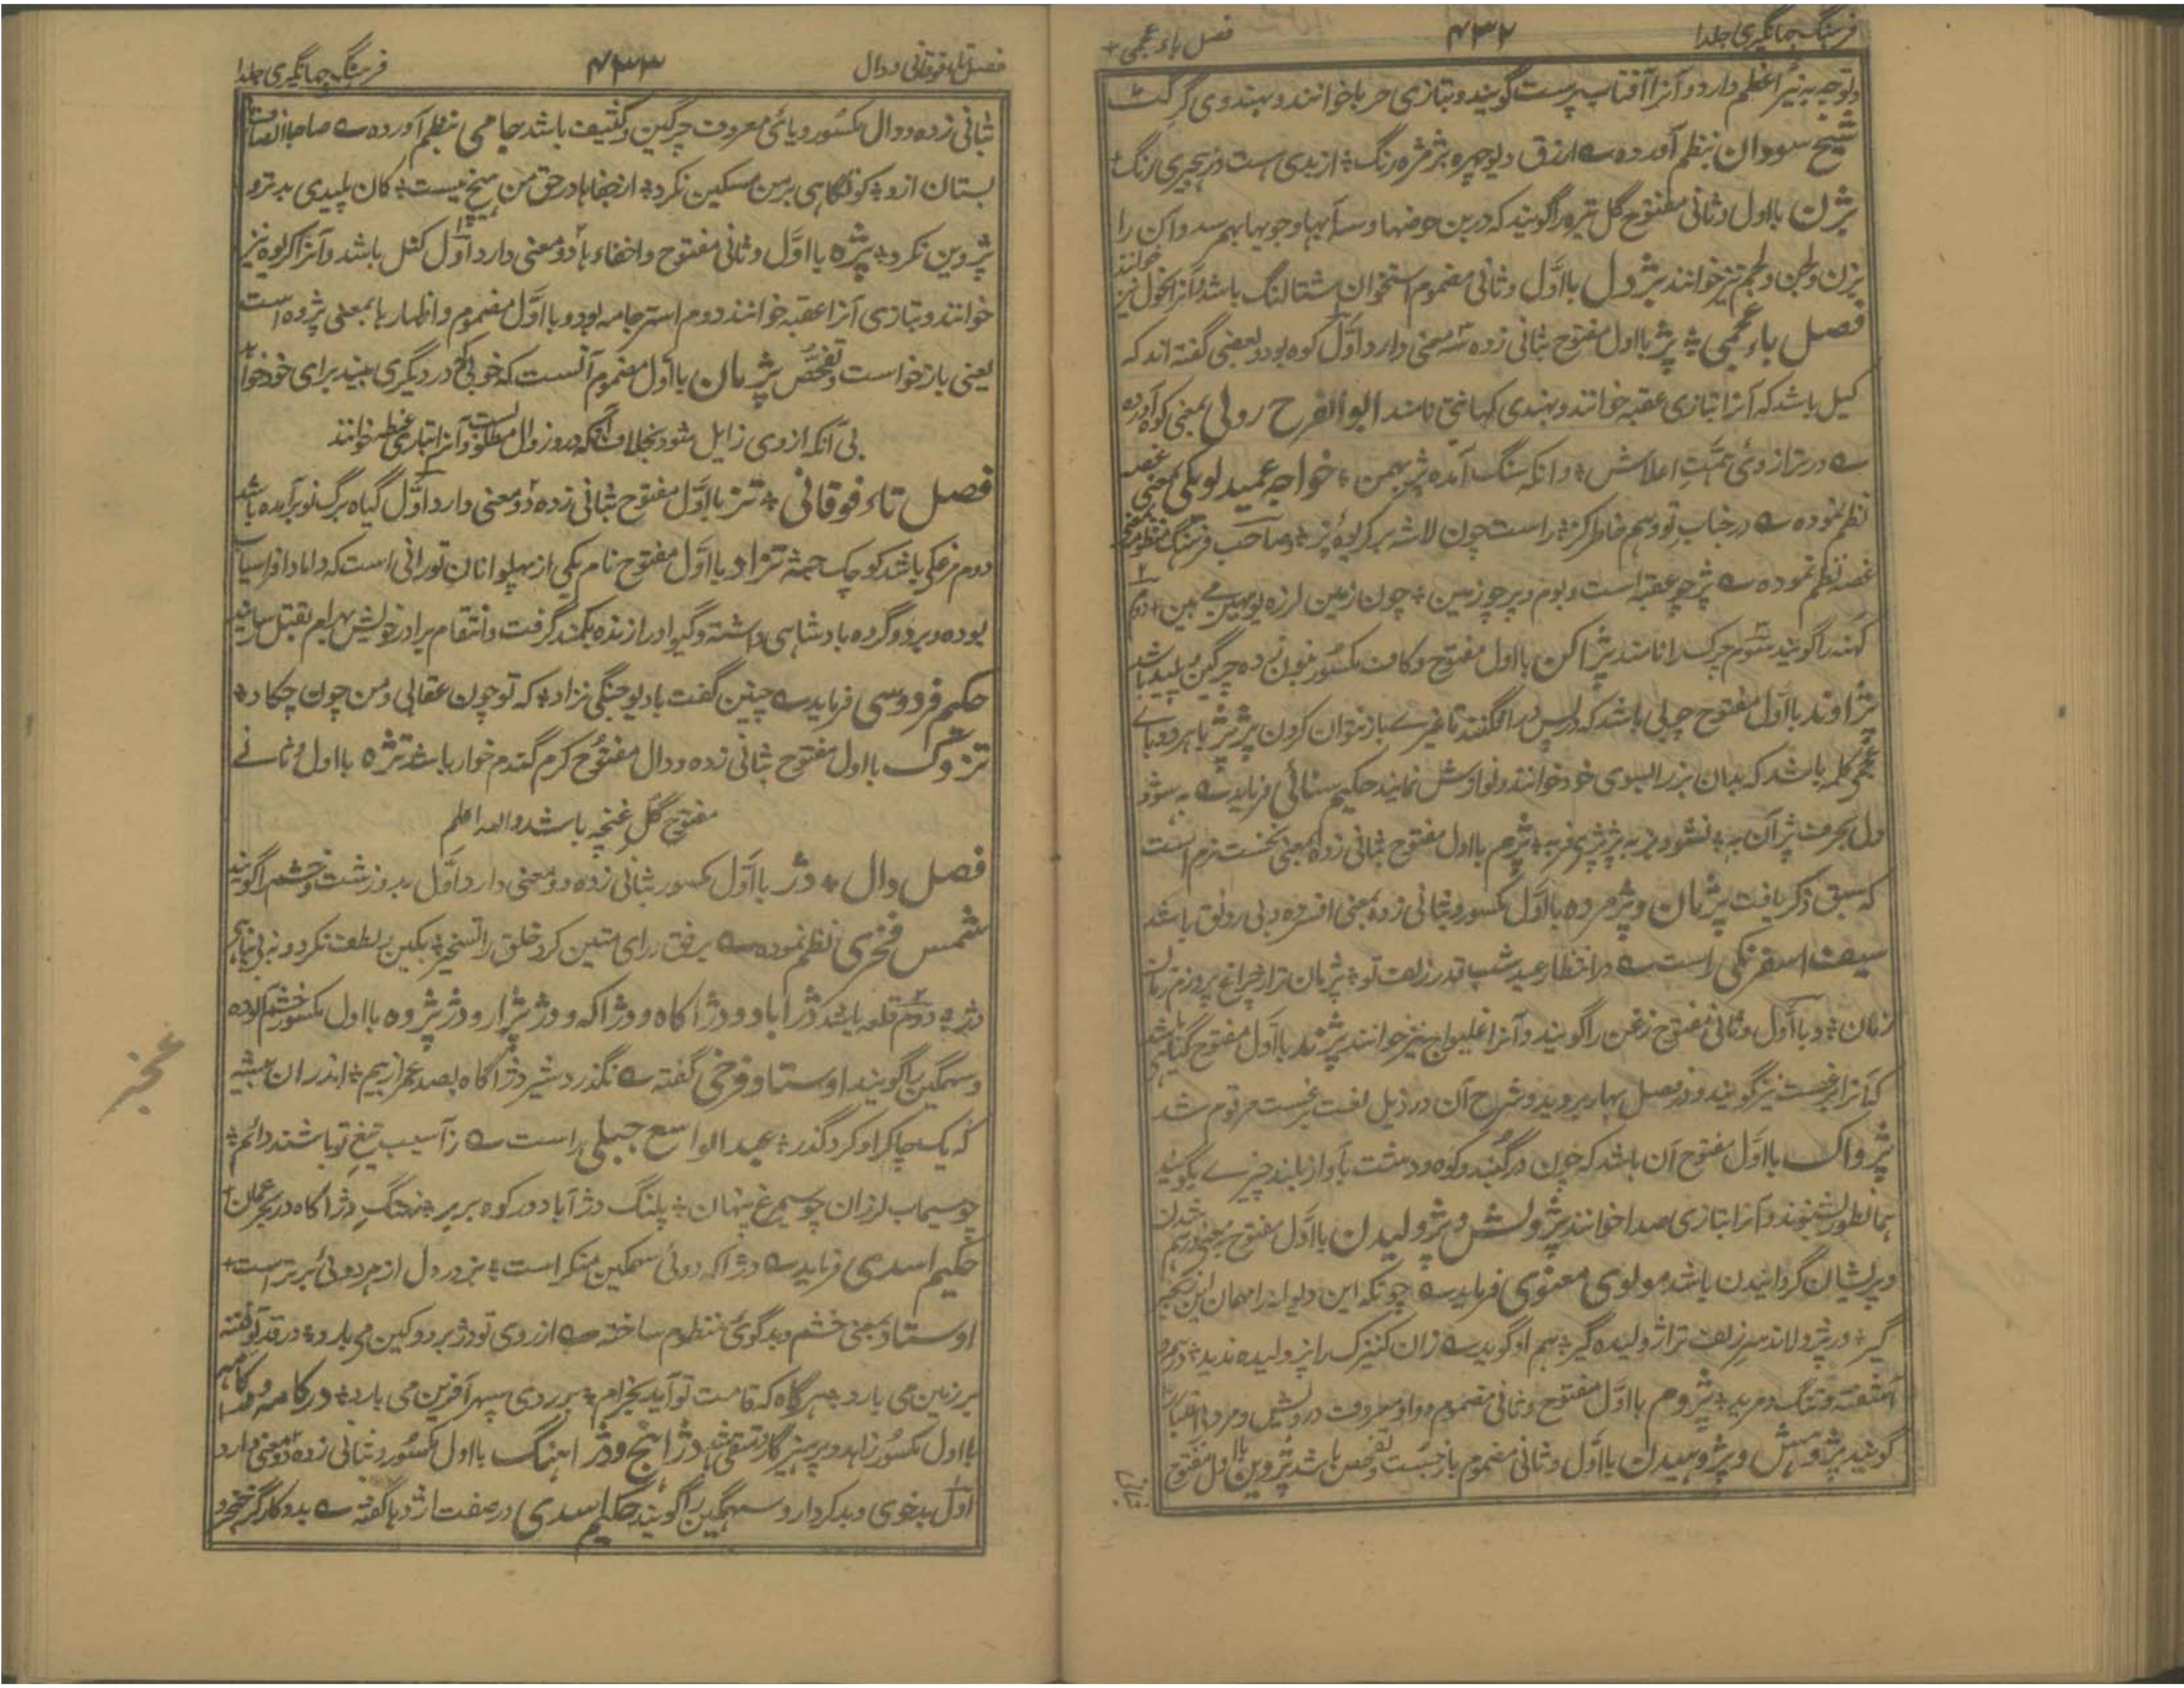 فرهنگ جهانگیری جلد۱ ۴۳۲ فصل باء عجمی
و توجه به نیر اعظم دارد و آنرا آفتاب پرست گویند و بتازی حربا خوانند و بهندوی گرگٹ
شیخ سودان بنظم آورده ازرق دیوچهره بژمژه رنگ
بژن بااول و ثانی مفتوح گل تیره را گویند که در بن حوضها و جویها بهم رسد و آن را
بزن و لجن و لجم نیز خوانند بژول بااول و ثانی مضموم استخوان شتالنگ باشد و آنرا بجول نیز خوانند
فصل باء عجمی پژ بااول مفتوح بثانی زده سه معنی دارد اول کوه بود و بعضی گفته اند که
کیل باشد که آنرا بتازی عقبه خوانند و بهندی گهاتی نامند ابوالفرح رونی بمعنی کوه آورده
در ترازوی همت اعلاش وانکه سنگ آمده پژ بهمن خواجه عمید لوبکی بمعنی عقبه
نظم نموده در جناب تو وهم خاطر کژ راست چون لاشه بر کریوه پژ صاحب فرهنگ منظومه
نظم نموده پژ چو عقبه است و بوم و بر چو زمین چون زمین لرزه بومهین می بین دوم
کهنه را گویند سوم چرک را نامند پژاکن بااول مفتوح و کاف مکسور بنون زده چرکین و پلید باشد
پژاوند بااول مفتوح چوبی باشد که در پس در افگنند تا غیری باز نتوان کردن پژپژ باهردو باء
عجمی کلمه باشد که بدان بز را بسوی خود خوانند و نوازش نمایند حکیم سنائی فرماید
پژم بااول مفتوح بثانی زده بمعنی نخست نزم است
که سبق ذکر یافت پژمان و پژمرده بااول مکسور و بثانی زده بمعنی افسرده و بی رونق باشد
سیف اسفرنگی راست در انتظار عید شب قدر زلف تو پژمان تر از چراغ بروزم زمان
زمان و بااول و ثانی مفتوح زغن را گویند و آنرا غلیواج نیز خوانند پژند بااول مفتوح گیاه باشد
که آنرا برغست نیز گویند و در فصل بهار بروید و شرح آن در ذیل لغت برغست مرقوم شد
پژواک بااول مفتوح آن باشد که چون در گنبد و کوه و دشت بآواز بلند چیزی بگویند
همانطور بشنوند و آنرا بتازی صدا خوانند پژولش و پژولیدن بااول مفتوح بمعنی درهم شدن
و پریشان گردانیدن باشد مولوی معنوی فرماید چونکه این دیوانه را مهمان
گیر ور پژولاند سر زلف ترا ژولیده گیر هم او گوید زان کنیزک را پژولیده ندید درهم و
آشفته و تنگ و مرید پژوم بااول مفتوح و ثانی مضموم و واو معروف درویش و مردم
گویند پژوهش و پژوهیدن بااول و ثانی مضموم بازجست و تفحص باشد پژوین بااول مفتوح
بثانی
فصل تاء فوقانی و دال ۴۳۳ فرهنگ جهانگیری جلد۱
بثانی زده و وال مکسور و یائی معروف چرکین و کثیف باشد جامی بنظم آورده صاحبا
بستان ازو کو نگاهی بر من مسکین نکرد از جفاها در حق من هیچ نیست کان پلیدی بدتر و
پژوین نکرد پژه بااول و ثانی مفتوح و اخفاء ها دو معنی دارد اول کتل باشد و آنرا کریوه نیز
خوانند و بتازی آنرا عقبه خوانند دوم استر جامه بود و بااول مضموم و اظهار ها بمعنی پژوه است
یعنی بازخواست و تفحص پژمان بااول مضموم آنست که خوبی در دیگری بیند برای خود خواهد
بی آنکه ازوی زایل شود بخلاف آنکه درو زوال مطلوبست و آنرا بتازی غبطه خوانند
فصل تاء فوقانی تژ بااول مفتوح بثانی زده دو معنی دارد اول گیاه برگ نو برآمده باشد
دوم مرغکی باشد کوچک جثه تژاو بااول مفتوح نام یکی از پهلوانان تورانی است که داماد افراسیاب
بوده و بر دو گروه بادشاهی داشته و گیو او را زنده بکمند گرفت و انتقام برادر خویش بهرام بقتل رسانید
حکیم فردوسی فرماید چنین گفت با دیو جنگی تژاو که تو چون عقابی و من چون چکاو
تژوک بااول مفتوح بثانی زده و وال مفتوح کرم گندم خوار باشد تژه بااول و ثانی
مفتوح گل غنچه باشد والله اعلم
فصل دال دژ بااول مکسور بثانی زده دو معنی دارد اول بد و زشت و خشم را گویند
شمس فخری نظم نموده برفق رای متین کرد خلق را تسخیر بکین بلطف نکرد و نه بی تدبیر
دژ دوم قلعه باشد دژآباد و دژآگاه و دژاکه و دژبژار و دژبژوه بااول مکسور خشم آلوده
و سهمگین را گویند اوستاد فرخی گفته نگذرد شیر دژآگاه بصد عمر از بیم اندران بیشه
که یک چاکر او کرد گذر عبدالواسع جبلی راست ز آسیب تیغ تو باشند دائم
چو سیماب لرزان چو سیمرغ پنهان پلنگ دژآباد در کوه بربر نهنگ دژآگاه در بحر عمان
حکیم اسدی فرماید دژاکه دوئی سهمگین منکر است بزور دل از هر دوئی برتر است
اوستاد بمعنی خشم و بدگوئی منظوم ساخته از روی تو دژ برد و کین می بارد در قد تو فتنه
بر زمین می بارد هرگاه که قامت تو آید بخرام بر روی سپهر آفرین می بارد
بااول مکسور زاهد و پرهیزگار و متقی باشد دژآهنج و دژآهنگ بااول مکسور و بثانی زده دو معنی دارد
اول بدخوی و بدکردار و سهمگین را گویند حکیم اسدی در صفت اژدها گفته